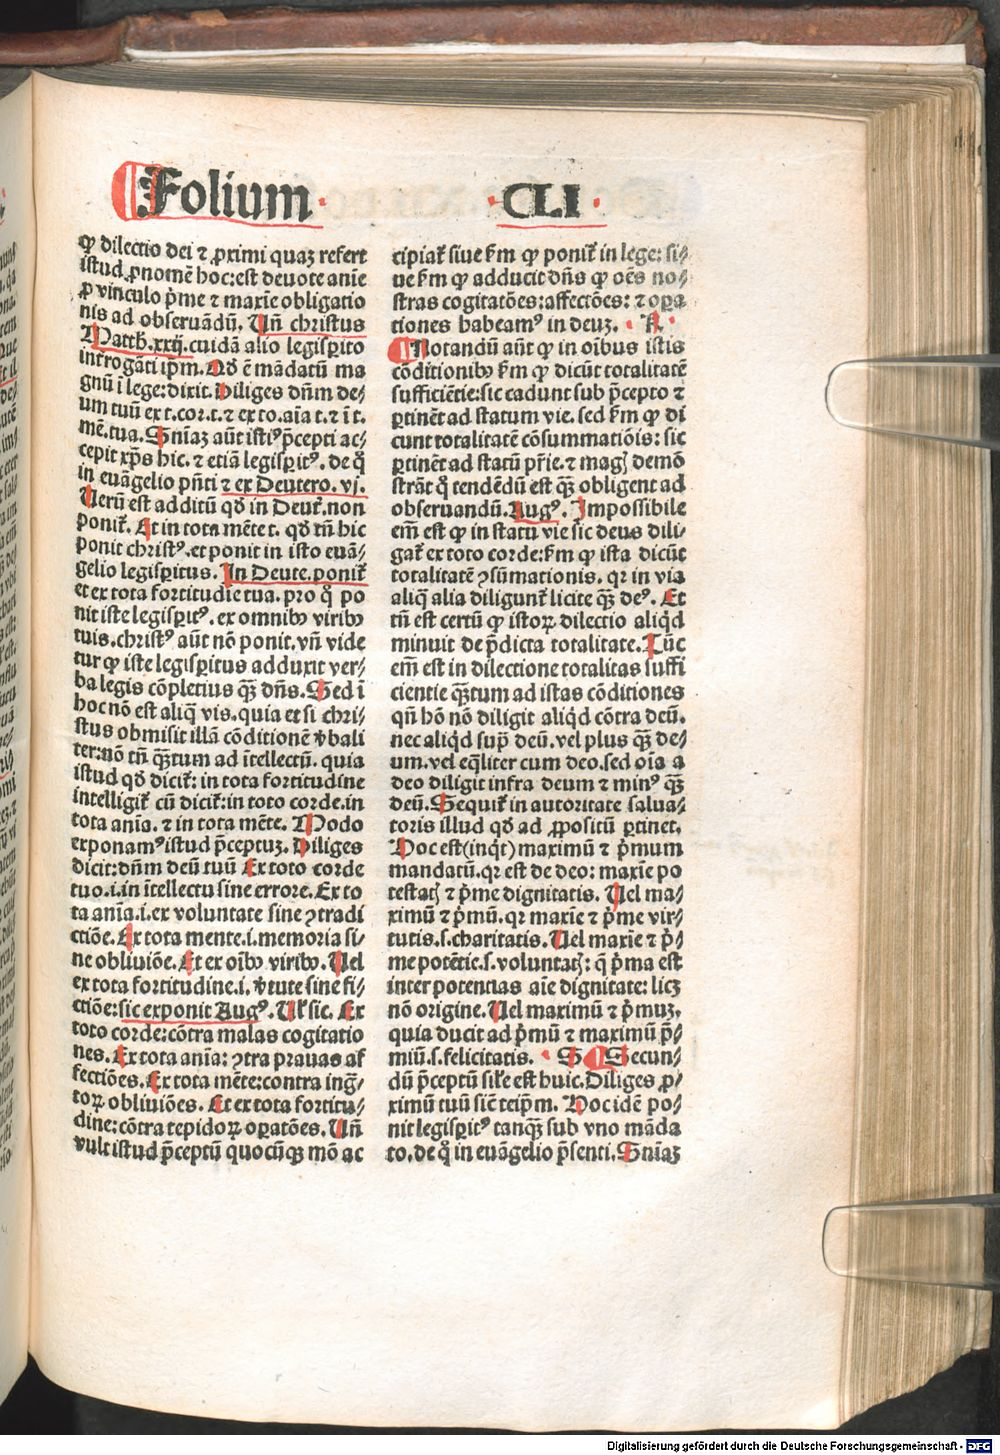 Folium CLI
ꝙ dilectio dei ⁊ ꝓximi quaꝫ refert
istud ꝓnomẽ hoc: est deuote anĩe
ꝓ vinculo p̃me ⁊ maxĩe obligatio
nis ad obseruãdũ. Uñ christus
Matth. xxij. cuidã alio legisꝑito
introgãti ip̃m. Qđ ẽ mãdatũ ma
gnũ ĩ lege: dixit. Diliges dñm de⸗
um tuũ ex t. cor. t. ⁊ ex to. aĩa t. ⁊ ĩ t.
mẽ. tua. Snĩaꝫ aũt istiꝰ p̃cepti ac⸗
cepit xp̃s hic. ⁊ etiã legisꝑitꝰ. de q̊
in euãgelio pñti ⁊ ex Deutero. vj.
Uerũ est additũ qđ in Deut̃. non
ponit̃. Et in tota mẽte t. qđ tñ hic
ponit christꝰ. et ponit in isto euã⸗
gelio legisꝑitus. In Deute. ponit̃
et ex tota fortitudĩe tua. pro q̊ po
nit iste legisꝑitꝰ. ex omnibꝰ viribꝰ
tuis. christꝰ aũt nõ ponit. vñ vide
tur ꝙ iste legisꝑitus adduxit ver⸗
ba legis cõpletius q̃ꝫ dñs. Sed ĩ
hoc nõ est aliq̃ vis. quia etsi chri⸗
stus obmisit illã cõditionẽ v̾bali
ter: nõ tñ q̃ꝫtum ad ĩtellectũ. quia
istud qđ dicit̃: in tota fortitudine
intelligit̃ cũ dicit̃: in toto corde. in
tota anĩa. ⁊ in tota mẽte. Modo
exponamꝰ istud p̃ceptuꝫ. Diliges
dicit: dñm deũ tuũ Ex toto corde
tuo. i. in ĩtellectu sine errore. Ex to
ta anĩa. i. ex voluntate sine ꝯtradi
ctiõe. Ex tota mente. i. memoria si⸗
ne obliuiõe. Et ex oĩbꝰ viribꝰ. Uel
ex tota fortitudine. i. v̾tute sine fi⸗
ctiõe: sic exponit Augꝰ. Ul̃ sic. Ex
toto corde: cõtra malas cogitatio
nes. Ex tota anĩa: ꝯtra prauas af
fectiões. Ex tota mẽte: contra ing̃⸗
toꝝ obliuiões. Et ex tota fortitu⸗
dine: cõtra tepidoꝝ oꝑatões. Uñ
vult istud p̃ceptũ quocũqꝫ mõ ac
cipiat̃ siue fm ꝙ ponit̃ in lege: si⸗
ue fm ꝙ adducit dñs ꝙ oẽs no⸗
stras cogitatões: affectões: ⁊ oꝑa
tiones habeamꝰ in deuꝫ. R
Notandũ aũt ꝙ in oĩbus istis
cõditionibꝰ fm ꝙ dicũt totalitatẽ
sufficiẽtie: sic cadunt sub p̃cepto ⁊
ꝑtinẽt ad statum vie. sed fm ꝙ di
cunt totalitatẽ cõsummatiõis: sic
ꝑtinẽt ad statũ pr̃ie. ⁊ magꝭ demõ
strãt q̊ tendẽdũ est q̃ꝫ obligent ad
obseruandũ. Augꝰ. Impossibile
em̃ est ꝙ in statu vie sic deus dili⸗
gat̃ ex toto corde: fm ꝙ ista dicũt
totalitatẽ ꝯsũmationis. qꝛ in via
aliq̃ alia diligunt̃ licite q̃ꝫ deꝰ. Et
tñ est certũ ꝙ istoꝝ dilectio aliq̇d
minuit de p̃dicta totalitate. Tũc
em̃ est in dilectione totalitas suffi
cientie q̃ꝫtum ad istas cõditiones
qñ hõ nõ diligit aliq̇d cõtra deũ.
nec aliq̇d sup̃ deũ. vel plus q̃ꝫ de⸗
um. vel eq̃liter cum deo. sed oĩa a
deo diligit infra deum ⁊ minꝰ q̃ꝫ
deũ. Sequit̃ in autoritate salua⸗
toris illud qđ ad ꝓpositũ ꝑtinet.
Hoc est (inq̇t) maximũ ⁊ p̃mum
mandatũ. qꝛ est de deo: maxĩe po
testatꝭ ⁊ p̃me dignitatis. Uel ma⸗
ximũ ⁊ p̃mũ. qꝛ maxĩe ⁊ p̃me vir⸗
tutis. s. charitatis. Uel maxĩe ⁊ p̃⸗
me potẽtie. s. voluntatꝭ: q̃ p̃ma est
inter potentias aĩe dignitate: licꝫ
nõ origine. Uel maximũ ⁊ p̃muꝫ.
quia ducit ad p̃mũ ⁊ maximũ p̃⸗
miũ. s. felicitatis. S Secun⸗
dũ p̃ceptũ sil̃e est huic. Diliges ꝓ⸗
ximũ tuũ sicũt teip̃m. Hoc idẽ po⸗
nit legisꝑitꝰ tanq̃ꝫ sub vno mãda
to. de q̊ in euãgelio p̃senti. Snĩaꝫ
Digitalisierung gefördert durch die Deutsche Forschungsgemeinschaft - DFG